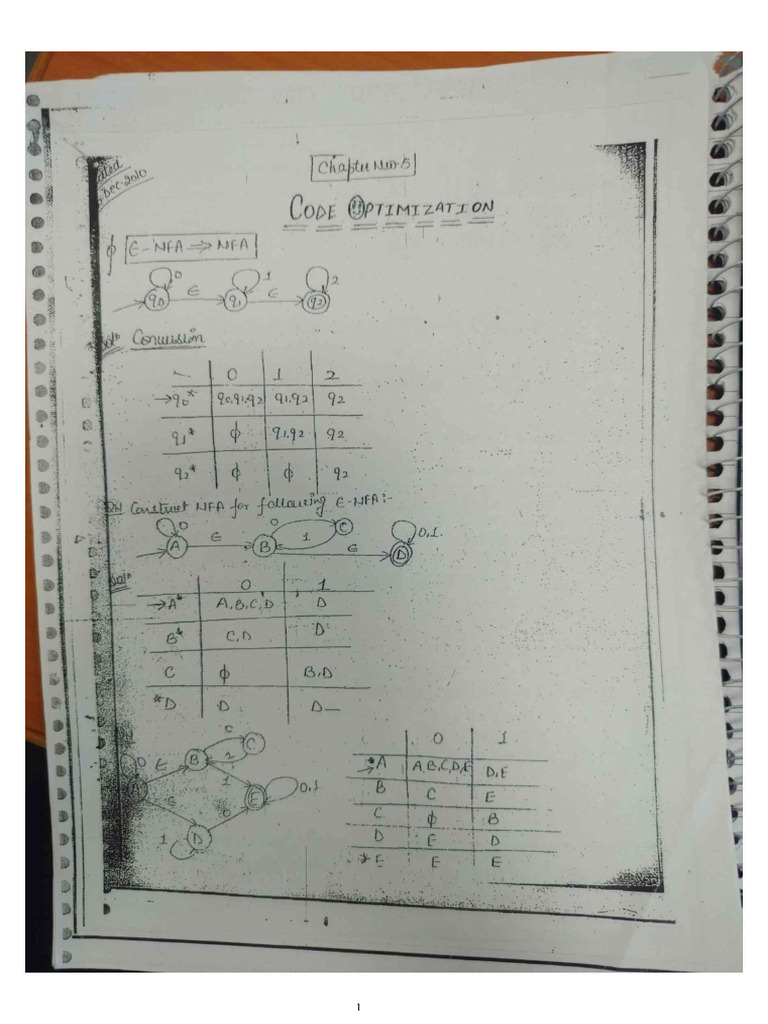 Chapter No-5
Dec-2010
CODE OPTIMIZATION
ϕ ∈-NFA ⇒ NFA
0 1 2
q0 ∈ q1 ∈ q2
Solⁿ Conversion
0 1 2
→q0* q0,q1,q2 q1,q2 q2
q1* ϕ q1,q2 q2
q2* ϕ ϕ q2
Construct NFA for following ∈-NFA:-
0 0 C 0,1
A ∈ B 1 ∈ D
Solⁿ
0 1
→A* A,B,C,D D
B* C,D D
C ϕ B,D
*D D D
0
0 ∈ B C
1 1
A E 0,1
∈ 0
1 D
0 1
→A A,B,C,D,E D,E
B C E
C ϕ B
D E D
*E E E
1